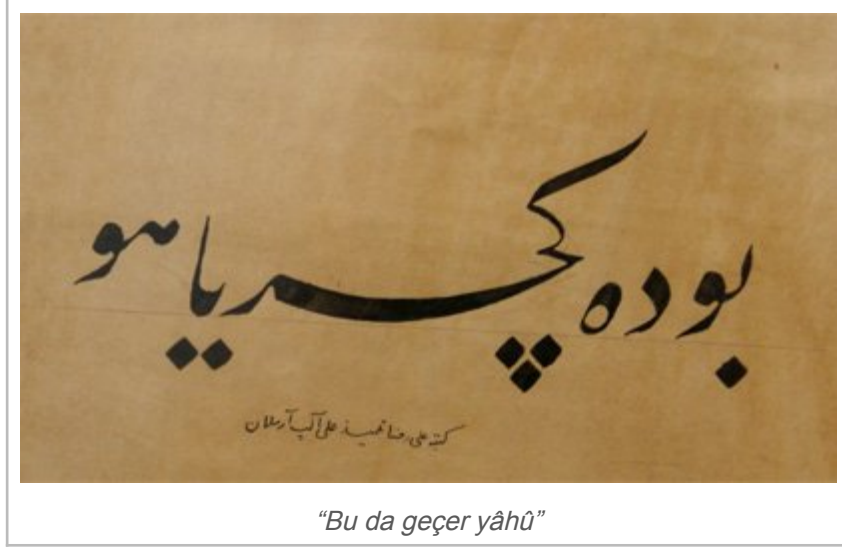 بوده کچر یا هو
کتبه علی رضا تلمیذ علی آلپ آرسلان
“Bu da geçer yâhû”